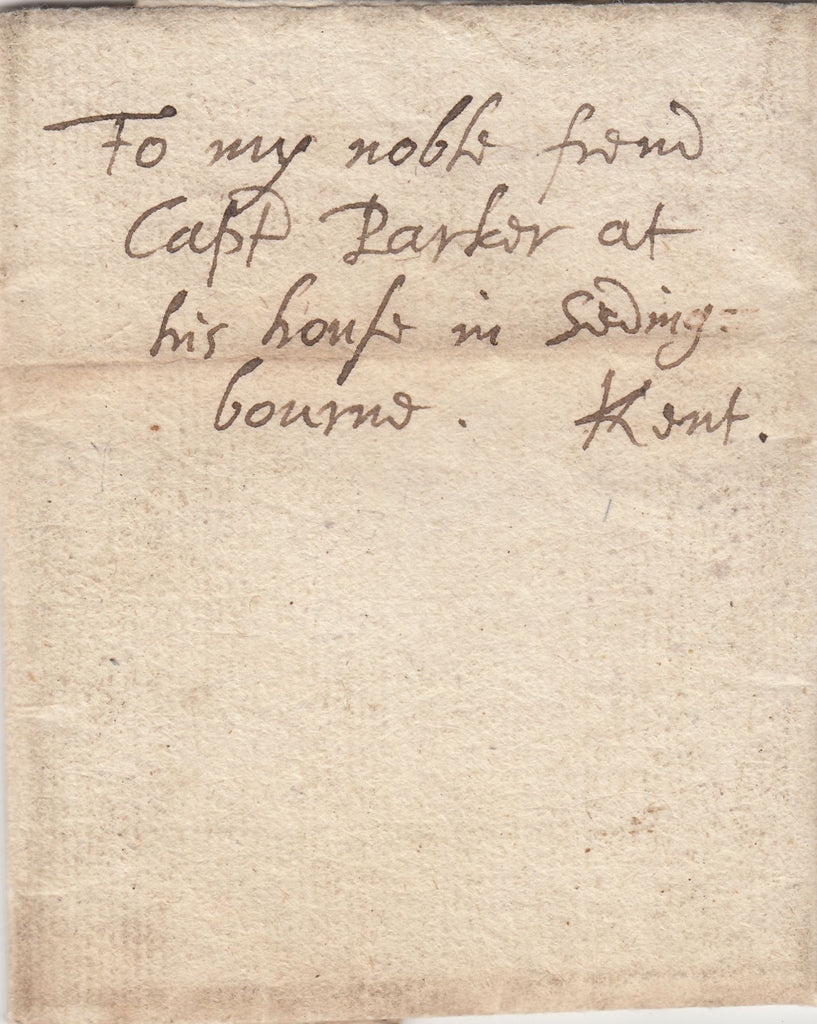 To my noble frend
Capt Parker at
his house in Seding=
bourne. Kent.